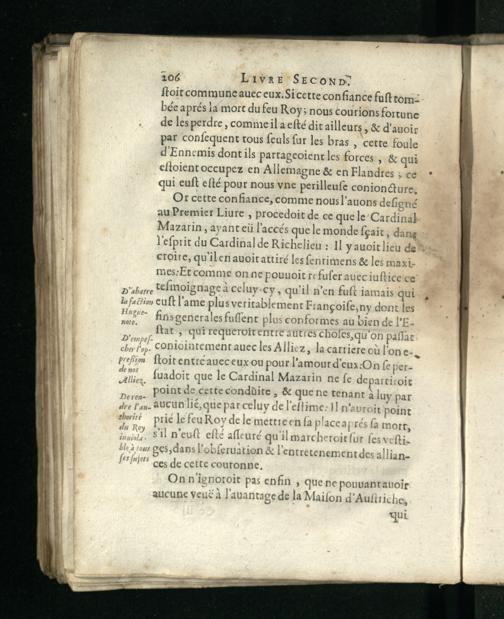 206 LIVRE SECOND.
stoit commune auec eux. Si cette confiance fust tom-
bée aprés la mort du feu Roy; nous courions fortune
de les perdre, comme il a esté dit ailleurs, & d'auoir
par consequent tous seuls sur les bras, cette foule
d'Ennemis dont ils partageoient les forces, & qui
estoient occupez en Allemagne & en Flandres; ce
qui eust esté pour nous vne perilleuse conioncture.
Or cette confiance, comme nous l'auons designé
au Premier Liure, procedoit de ce que le Cardinal
Mazarin, ayant eü l'accés que le monde sçait, dans
l'esprit du Cardinal de Richelieu: Il y auoit lieu de
croire, qu'il en auoit attiré les sentimens & les maxi-
mes: Et comme on ne pouuoit refuser auec iustice ce
tesmoignage à celuy-cy, qu'il n'en fust iamais qui
eust l'ame plus veritablement Françoise, ny dont les
fins generales fussent plus conformes au bien de l'E-
stat, qui requeroit entre autres choses, qu'on passât
coniointement auec les Alliez, la carriere où l'on e-
stoit entré auec eux ou pour l'amour d'eux: On se per-
suadoit que le Cardinal Mazarin ne se departiroit
point de cette conduite, & que ne tenant à luy par
aucun lié, que par celuy de l'estime: Il n'auroit point
prié le feu Roy de le mettre en sa place aprés sa mort,
s'il n'eust esté asseuré qu'il marcheroit sur ses vesti-
ges, dans l'obseruation & l'entretenement des allian-
ces de cette couronne.
On n'ignoroit pas enfin, que ne pouuant auoir
aucune veuë à l'auantage de la Maison d'Austriche,
qui
D'abatre
la faction
Hugue-
note.
D'empes-
cher l'op-
pression
de nos
Alliez.
De ren-
dre l'au-
thorité
du Roy
inuiola-
ble à tous
ses sujets